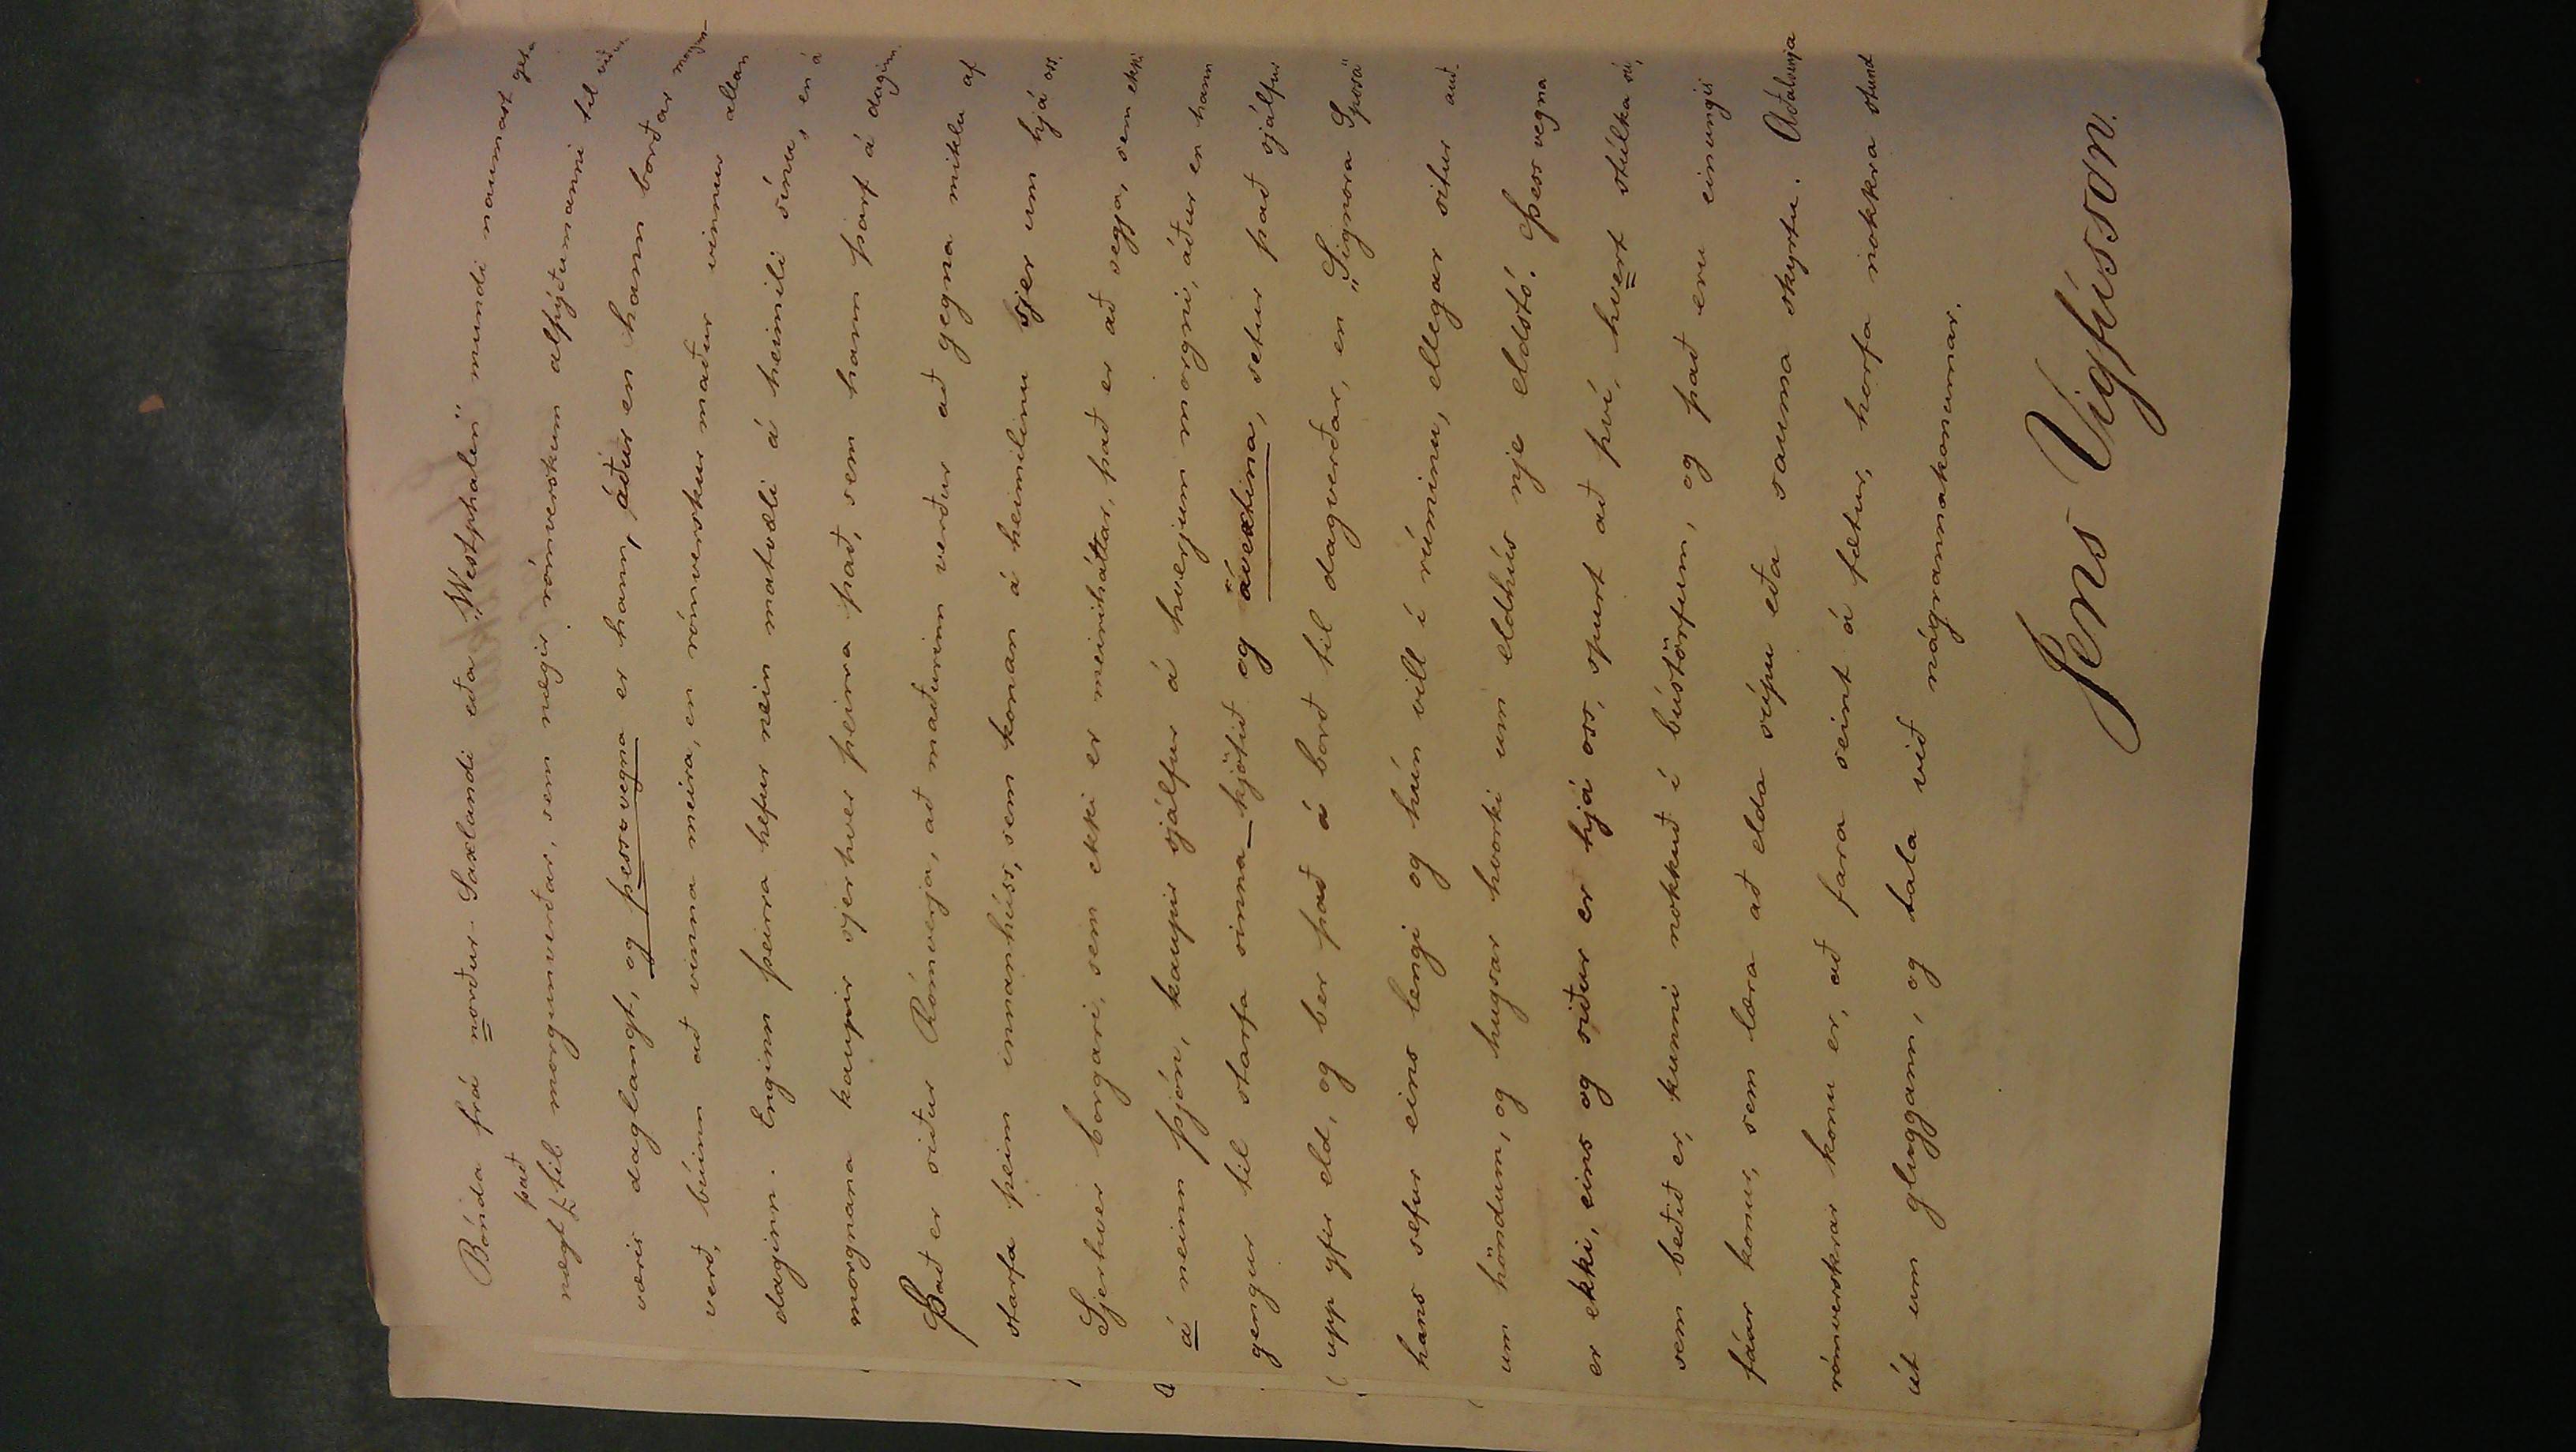 Bónda frá norður-Saxlandi eða „Westphalen" mundi naumast geta
það
nægt til morgunverðar, sem nægir rómverskum alþýðumanni til
veris daglangt, og þess vegna er hann, áður en hann borðar morgun-
verð, búinn að vinna meira, en rómverskur maður vinnur allan
daginn. Enginn þeirra hefur nein matvæli á heimili sínu, en á
morgnana kaupir sjerhver þeirra það, sem hann þarf á daginn.
Það er siður Rómverja, að maðurinn verður að gegna miklu af
starfa þeim innanhúss, sem konan á heimilinu sjer um hjá oss.
Sjerhver borgari, sem ekki er meiriháttar, það er að segja, sem ekki
á neinn þjón, kaupir sjálfur á hverjum morgni, áður en hann
gengur til starfa sinna_kjötið og ávextina, setur það sjálfur
upp yfir eld, og ber það á borð til dagverðar, en „Signora Sposa"
hans sefur eins lengi og hún vill í rúminu, ellegar situr auð-
um höndum, og hugsar hvorki um eldhús nje eldstó. Þess vegna
er ekki, eins og siður er hjá oss, spurt að því, hvert stúlka sú,
sem beðið er, kunni nokkuð í bústörfum, og það eru einungis
fáar konur, sem læra að elda súpu eða sauma skyrtu. Aðalvenja
rómverskrar konu er, að fara seint á fætur, horfa nokkra stund
út um gluggann, og tala við nágrannakonurnar.
Jens Vigfússon.